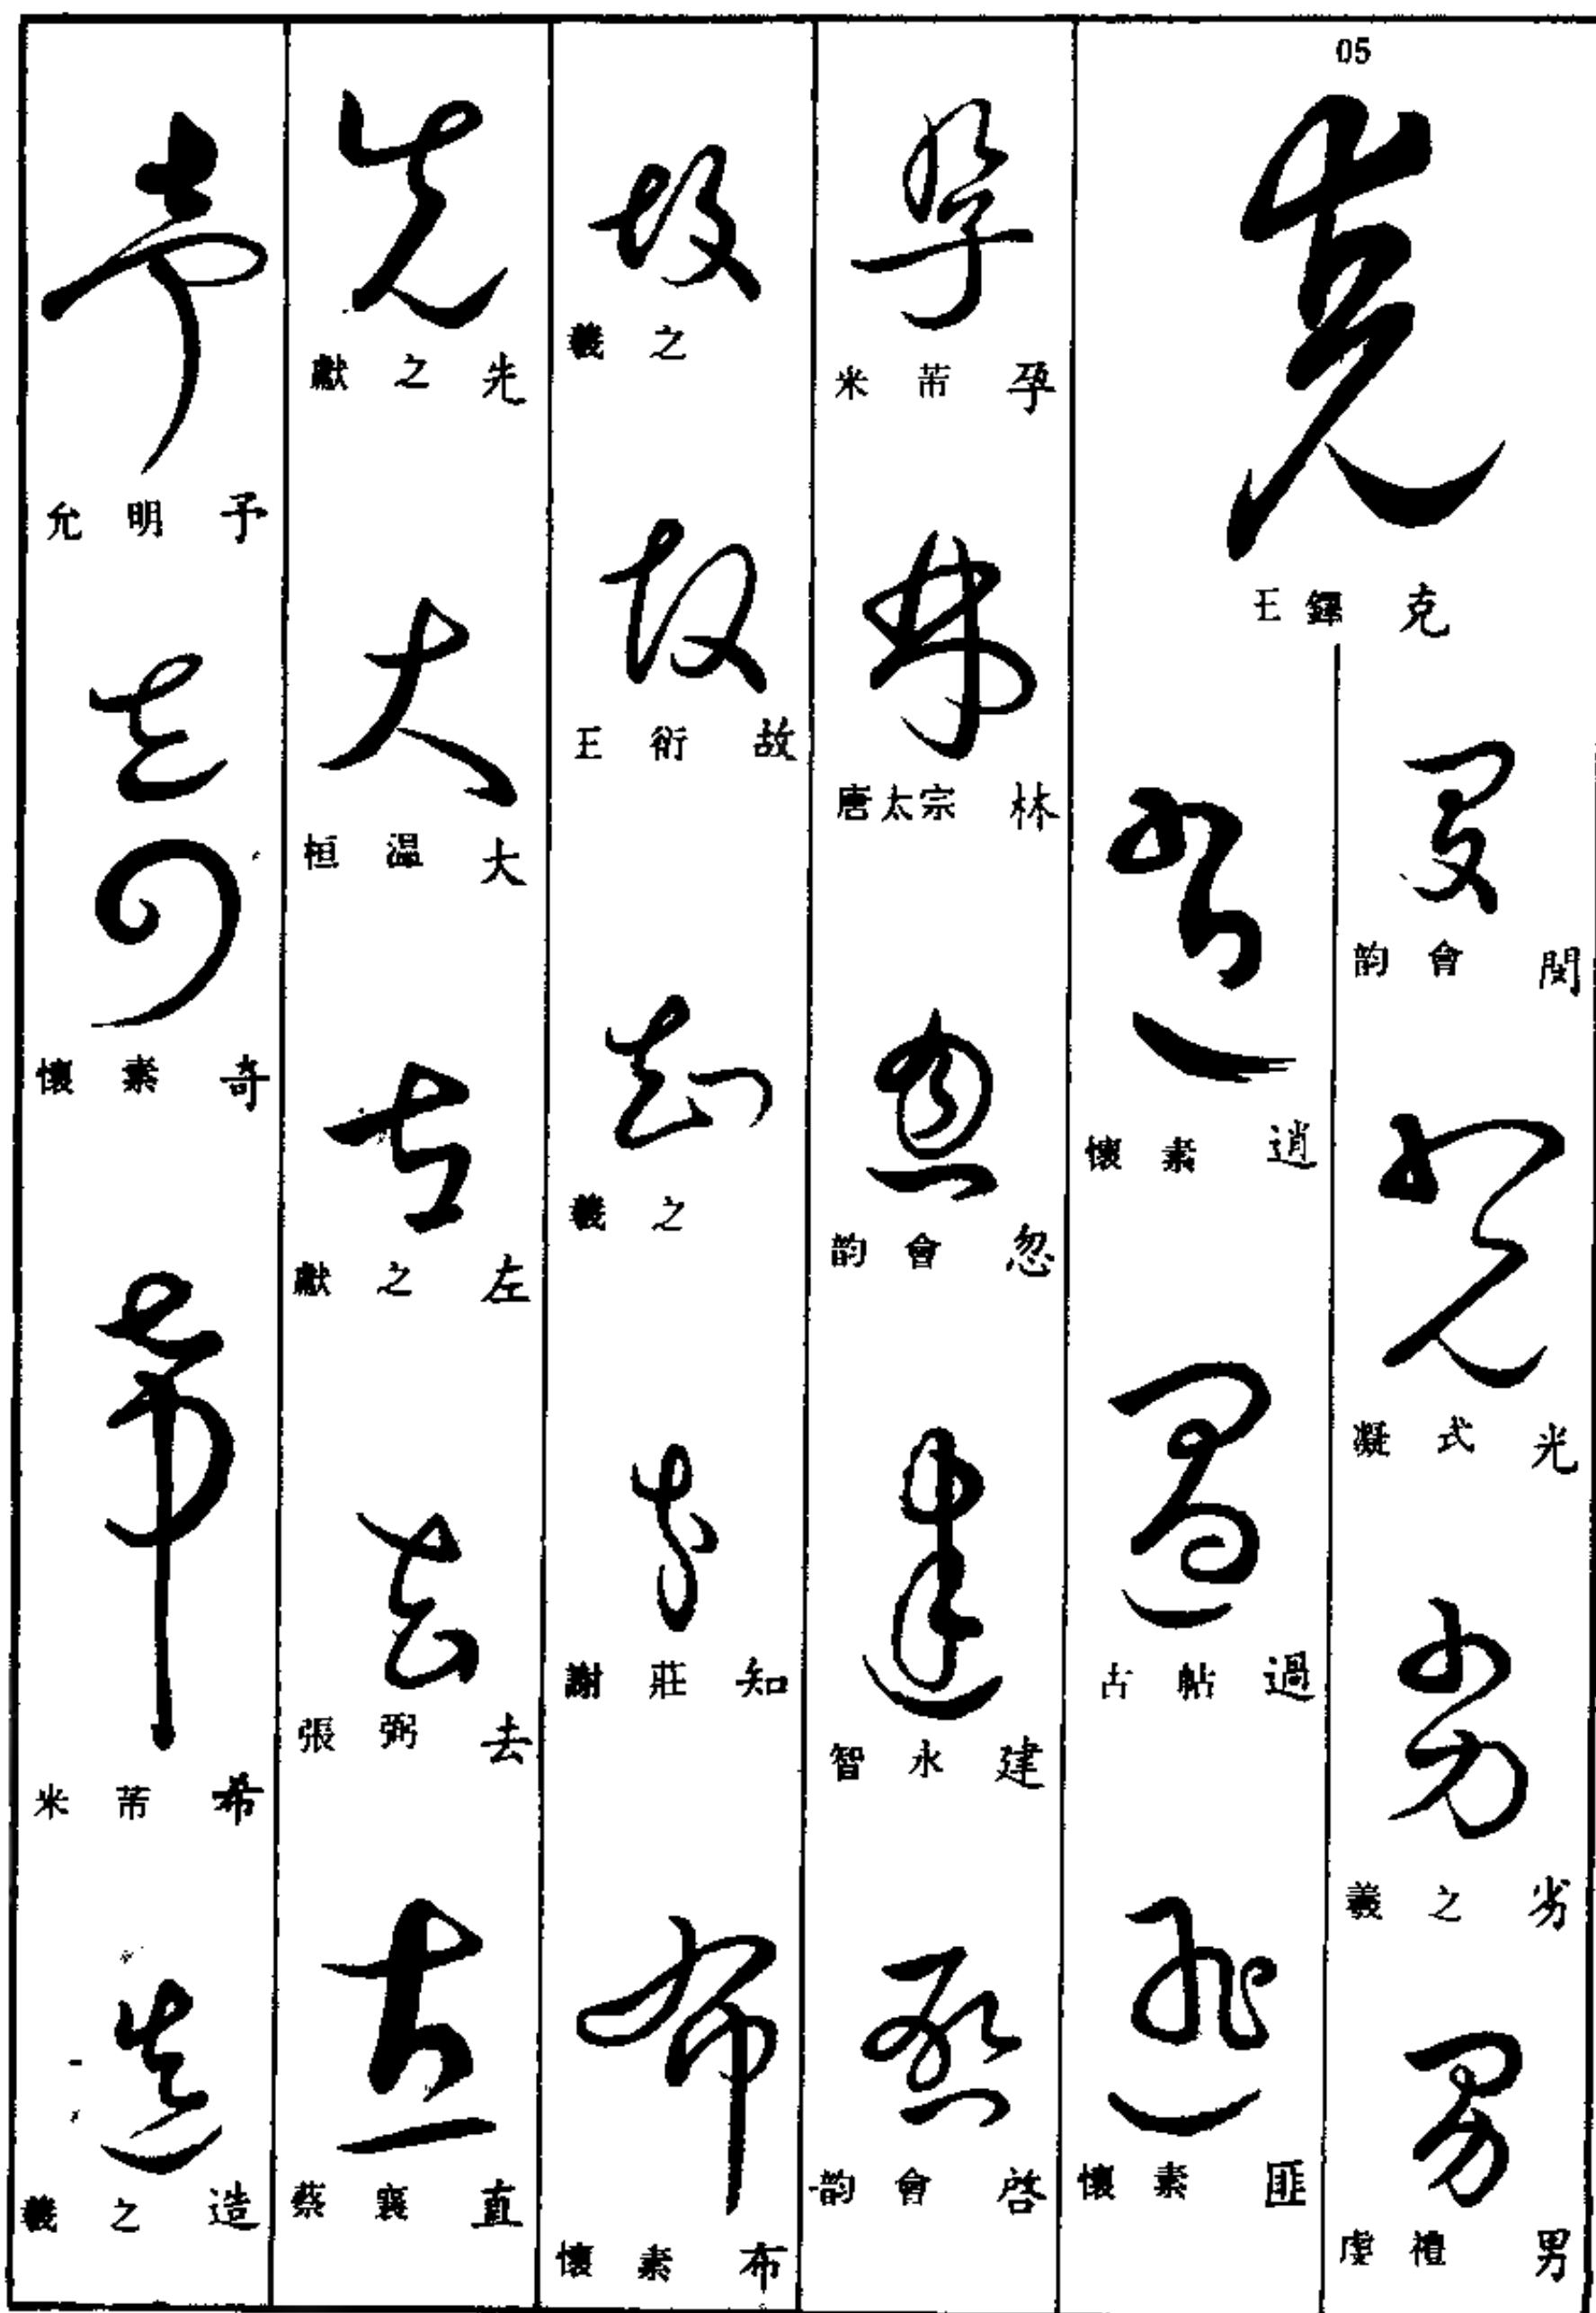 05
王鐸 克
韵會 閔
凝式 光
羲之 劣
虔禮 男
懷素 逍
古帖 過
懷素 匪
米芾 孕
唐太宗 林
韵會 忽
智永 建
韵會 啓
羲之
王衍 故
羲之
謝莊 知
懷素 布
獻之 先
桓温 大
獻之 左
張弼 去
蔡襄 直
允明 予
懷素 奇
米芾 希
羲之 造